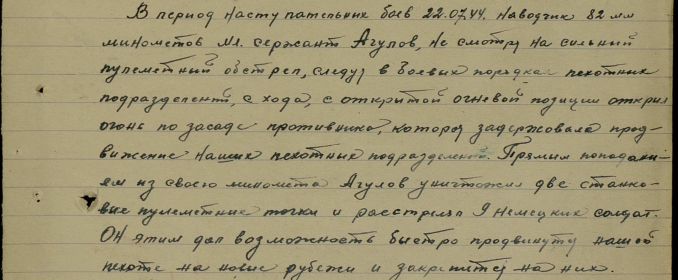 В период наступательных боев 22.07.44. наводчик 82 мм
минометов мл. сержант Агулов, не смотря на сильный
пулеметный обстрел, следуя в боевых порядках пехотных
подразделений, с хода, с открытой огневой позиции открыл
огонь по засаде противника, которая задерживала прод-
вижение наших пехотных подразделений. Прямым попадани-
ем из своего миномета Агулов уничтожил две станко-
вые пулеметные точки и расстрелял 9 немецких солдат.
Он этим дал возможность быстро продвинуться нашей
пехоте на новые рубежи и закрепится на них.